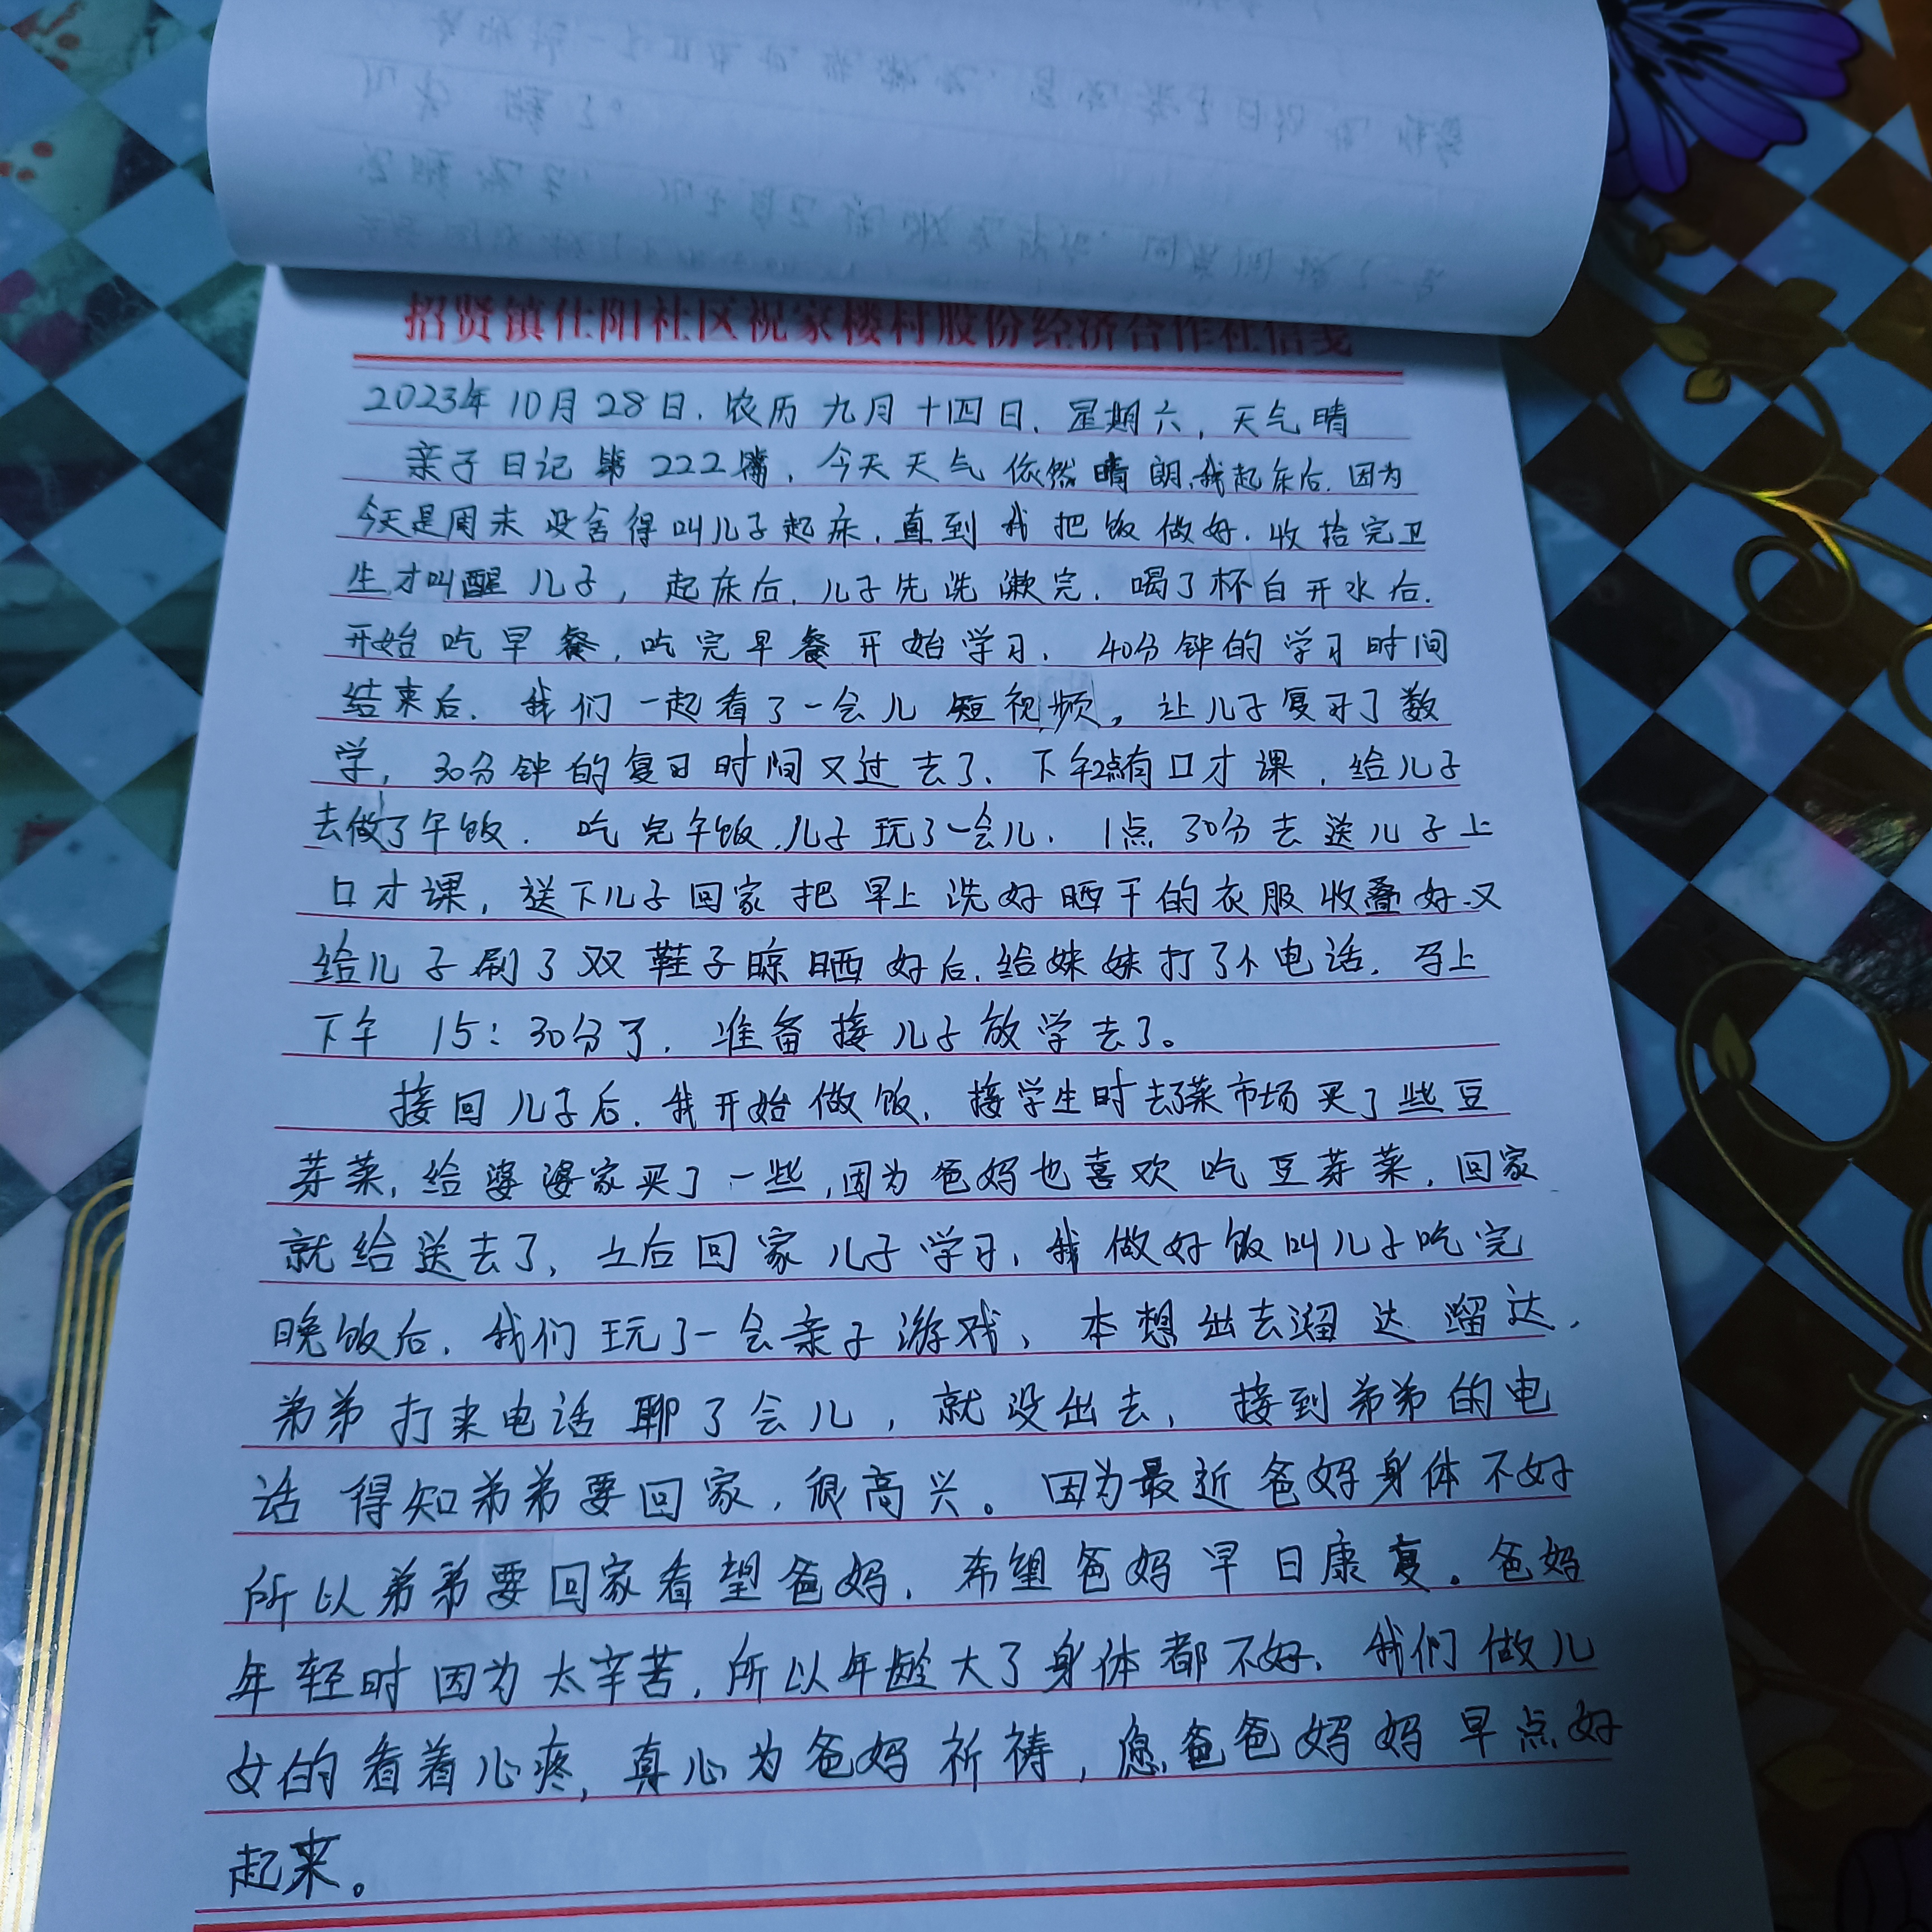 招贤镇仕阳社区祝家楼村股份经济合作社信笺
2023年10月28日.农历九月十四日、星期六,天气晴
亲子日记第222篇,今天天气依然晴朗,我起床后.因为
今天是周末没舍得叫儿子起床,直到我把饭做好.收拾完卫
生才叫醒儿子,起床后.儿子先洗漱完.喝了杯白开水后.
开始吃早餐,吃完早餐开始学习.40分钟的学习时间
结束后.我们一起看了一会儿短视频。让儿子复习了数
学,30分钟的复习时间又过去了、下午2点有口才课,给儿子
去做了午饭.吃完午饭,儿子玩了一会儿.1点30分去送儿子上
口才课,送下儿子回家把早上洗好晒干的衣服收叠好.又
给儿子刷了双鞋子晾晒好后.给妹妹打了个电话.马上
下午15:30分了.准备接儿子放学去了。
接回儿子后.我开始做饭.接学生时去了菜市场买了些豆
芽菜,给婆婆家买了一些,因为爸妈也喜欢吃豆芽菜.回家
就给送去了,后回家儿子学习,我做好饭叫儿子吃完
晚饭后.我们玩了一会亲子游戏、本想出去溜达溜达.
弟弟打来电话聊了会儿,就没出去,接到弟弟的电
话得知弟弟要回家,很高兴。因为最近爸妈身体不好
所以弟弟要回家看望爸妈.希望爸妈早日康复。爸妈
年轻时因为太辛苦,所以年龄大了身体都不好、我们做儿
女的看着心疼,真心为爸妈祈祷,愿爸爸妈妈早点好
起来。